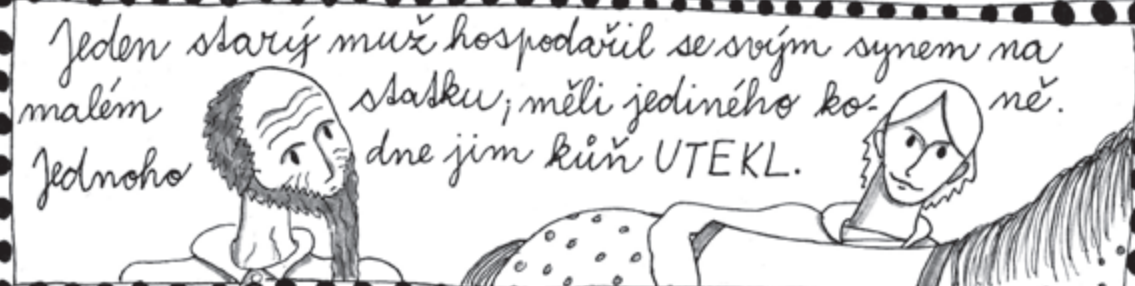 Jeden starý muž hospodařil se svým synem na
malém statku; měli jediného ko- ně.
Jednoho dne jim kůň UTEKL.